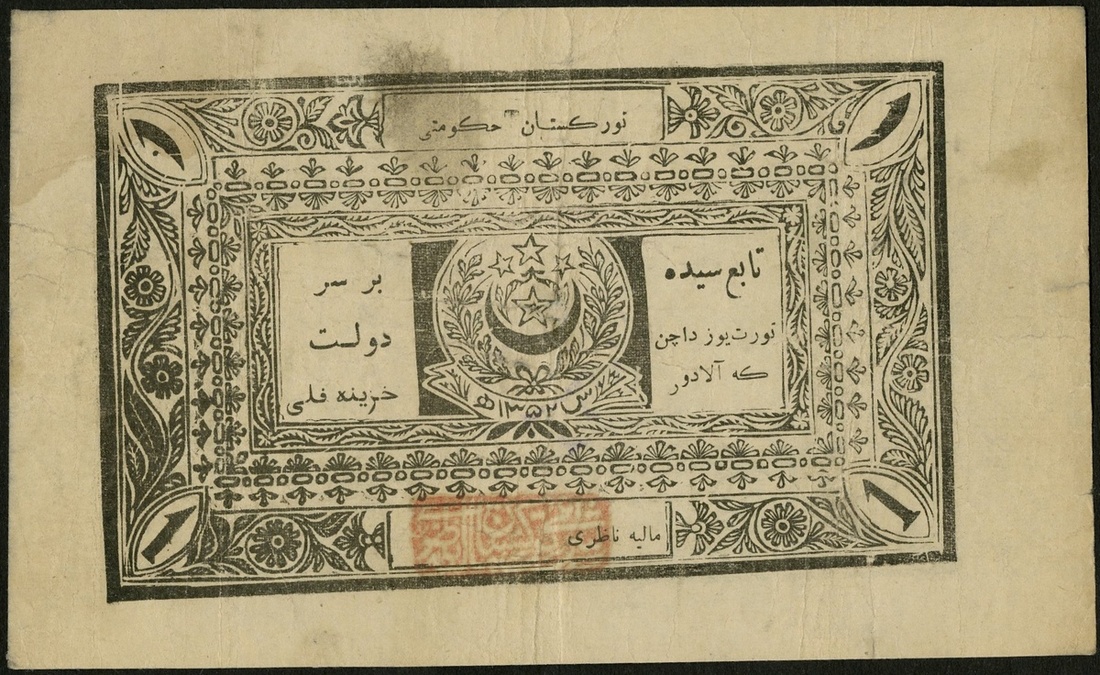 تورکستان حکومتی
تابع سیده
تورت یوز داچن
که آلادور
بر سر
دولت
خزینه قلی
سنه ١٣٥٢ھ
مالیه ناظری
١
١
1
1